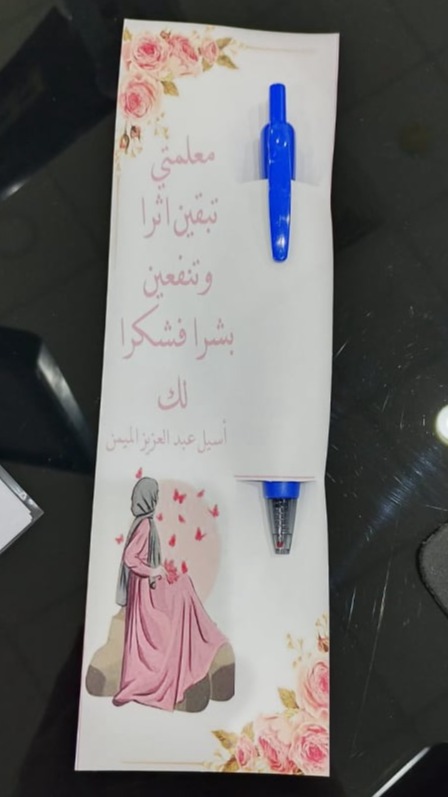 معلمتي
تبقين اثرا
وتنفعين
بشرا فشكرا
لك
أسيل عبد العزيز الميمن